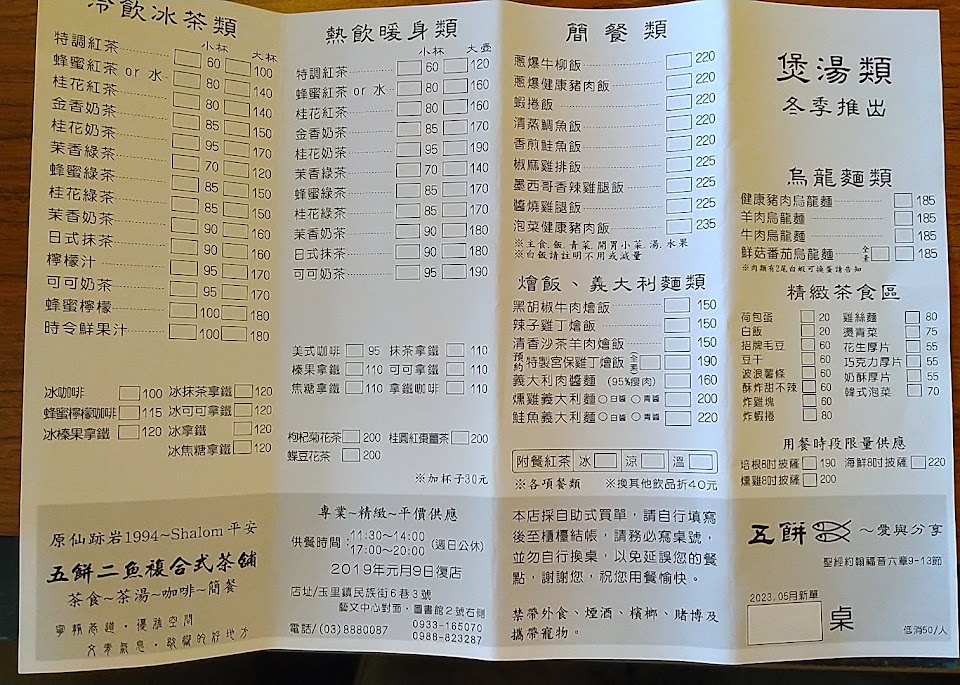 冷飲冰茶類
小杯 大杯
特調紅茶 60 100
蜂蜜紅茶 or 水 80 140
桂花紅茶 80 140
金香奶茶 85 150
桂花奶茶 95 170
茉香綠茶 70 120
蜂蜜綠茶 85 150
桂花綠茶 85 150
茉香奶茶 90 160
日式抹茶 90 160
檸檬汁 95 170
可可奶茶 95 170
蜂蜜檸檬 100 180
時令鮮果汁 100 180
冰咖啡 100 冰抹茶拿鐵 120
蜂蜜檸檬咖啡 115 冰可可拿鐵 120
冰榛果拿鐵 120 冰拿鐵 120
冰焦糖拿鐵 120
原仙跡岩1994~Shalom 平安
五餅二魚複合式茶舖
茶食~茶湯~咖啡~簡餐
寧靜巷道・優雅空間
熱飲暖身類
小杯 大壺
特調紅茶 60 120
蜂蜜紅茶 or 水 80 160
桂花紅茶 80 160
金香奶茶 85 170
桂花奶茶 95 190
茉香綠茶 70 140
蜂蜜綠茶 85 170
桂花綠茶 85 170
茉香奶茶 90 180
日式抹茶 90 180
可可奶茶 95 190
美式咖啡 95 抹茶拿鐵 110
榛果拿鐵 110 可可拿鐵 110
焦糖拿鐵 110 拿鐵咖啡 110
枸杞菊花茶 200 桂圓紅棗薑茶 200
蝶豆花茶 200
※加杯子30元
專業~精緻~平價供應
供餐時間:11:30~14:00
17:00~20:00 (週日公休)
2019年元月9日復店
店址/玉里鎮民族街6巷3號
藝文中心對面・圖書館2號右側
電話/(03)8880087 0933-165070
0988-823287
簡餐類
蔥爆牛柳飯 220
蔥爆健康豬肉飯 220
蝦捲飯 220
清蒸鯛魚飯 220
香煎鮭魚飯 220
椒麻雞排飯 225
墨西哥香辣雞腿飯 225
醬燒雞腿飯 225
泡菜健康豬肉飯 235
※主食.飯.青菜.開胃小菜.湯.水果
※白飯請註明不用或減量
燴飯、義大利麵類
黑胡椒牛肉燴飯 150
辣子雞丁燴飯 150
清香沙茶羊肉燴飯 150
預約 特製宮保雞丁燴飯 (全素) 190
義大利肉醬麵 (95%瘦肉) 160
燻雞義大利麵 ○白醬 ○青醬 200
鮭魚義大利麵 ○白醬 ○青醬 220
附餐紅茶 冰 涼 溫
※各項餐類 ※換其他飲品折40元
本店採自助式買單，請自行填寫
後至櫃檯結帳，請務必寫桌號，
並勿自行換桌，以免延誤您的餐
點，謝謝您，祝您用餐愉快。
禁帶外食、煙酒、檳榔、賭博及
攜帶寵物。
煲湯類
冬季推出
烏龍麵類
健康豬肉烏龍麵 185
羊肉烏龍麵 185
牛肉烏龍麵 185
鮮菇番茄烏龍麵 全素 185
※肉類有2尾白蝦可換蛋請告知
精緻茶食區
荷包蛋 20 雞絲麵 80
白飯 20 燙青菜 75
招牌毛豆 60 花生厚片 55
豆干 60 巧克力厚片 55
波浪薯條 60 奶酥厚片 55
酥炸甜不辣 60 韓式泡菜 70
炸雞塊 60
炸蝦捲 80
用餐時段限量供應
培根8吋披薩 190 海鮮8吋披薩 220
燻雞8吋披薩 200
五餅 ~愛與分享
聖經約翰福音六章9-13節
2023.05月新單
桌
低消50/人